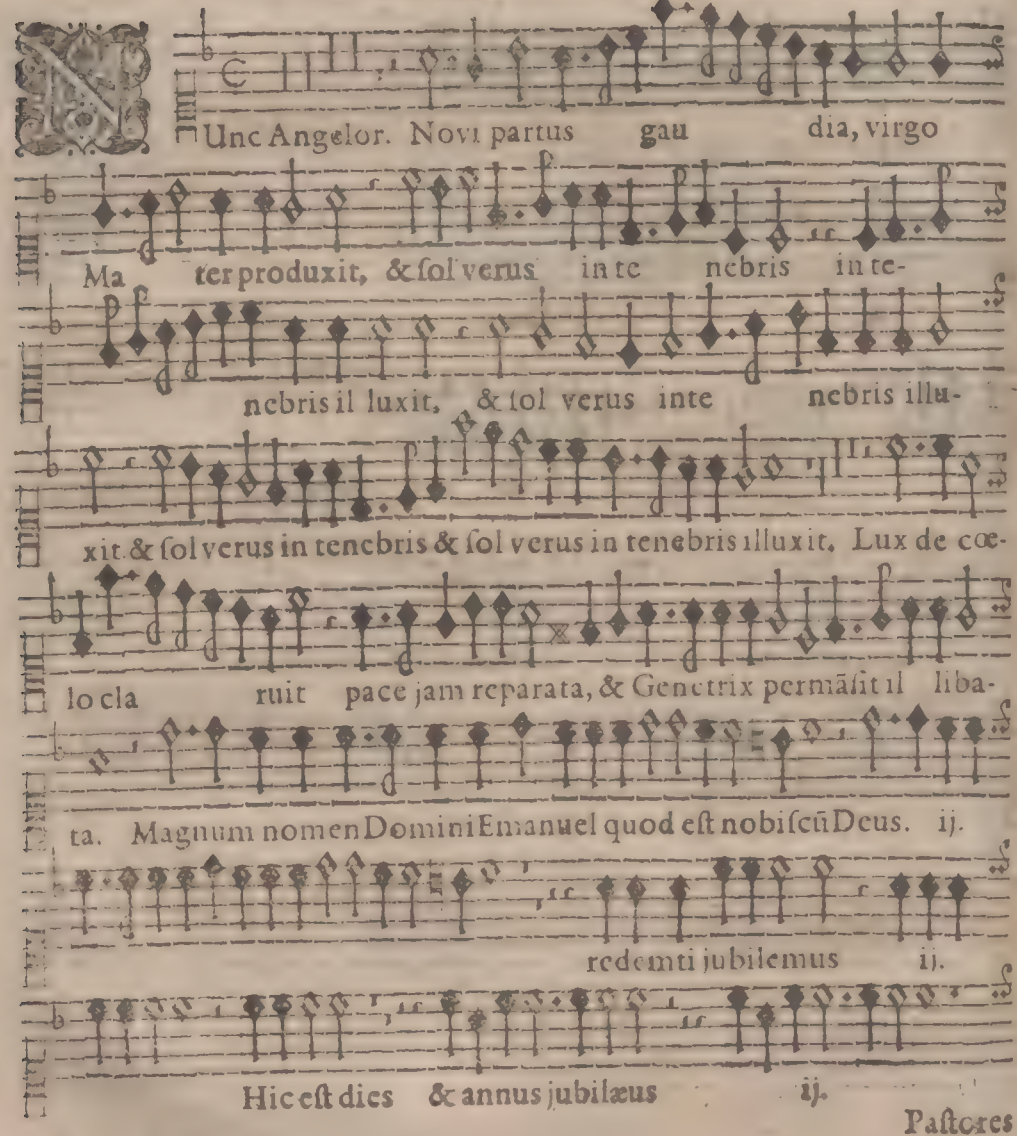 NUnc Angelor. Novi partus gau dia, virgo
Ma ter produxit, & ſol verus in te nebris in te-
nebris il luxit, & ſol verus inte nebris illu-
xit. & ſol verus in tenebris & ſol verus in tenebris illuxit. Lux de cœ-
lo cla ruit pace jam reparata, & Genetrix permāſit il liba-
ta. Magnum nomen Domini Emanuel quod eſt nobiſcū Deus. ij.
redemti jubilemus ij.
Hic eſt dies & annus jubilæus ij.
Paſtores